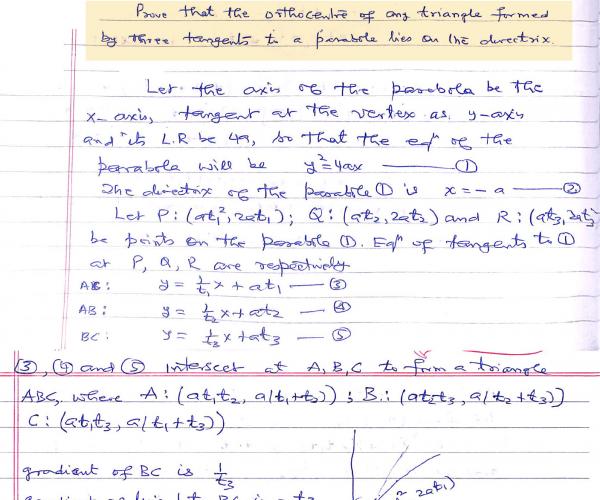 Prove that the orthocentre of any triangle formed
by three tangents to a parabola lies on the directrix.
Let the axis of the parabola be the
x-axis, tangent at the vertex as y-axis
and its L.R be 4a, so that the eqⁿ of the
parabola will be y²=4ax ——— ①
The directrix of the parabola ① is x=-a — ②
Let P: (at₁², 2at₁); Q: (at₂, 2at₂) and R: (at₃, 2at₃
be points on the parabola ①. Eqⁿ of tangents to ①
at P, Q, R are respectively
y = 1/t₁ x + at₁ — ③
AB: y = 1/t₂ x + at₂ — ④
BC: y = 1/t₃ x + at₃ — ⑤
③, ④ and ⑤ intersect at A, B, C to form a triangle
ABC, where A: (at₁t₂, a(t₁+t₂)); B: (at₂t₃, a(t₂+t₃)]
C: (at₁t₃, a(t₁+t₃))
gradient of BC is 1/t₃
2at₁)